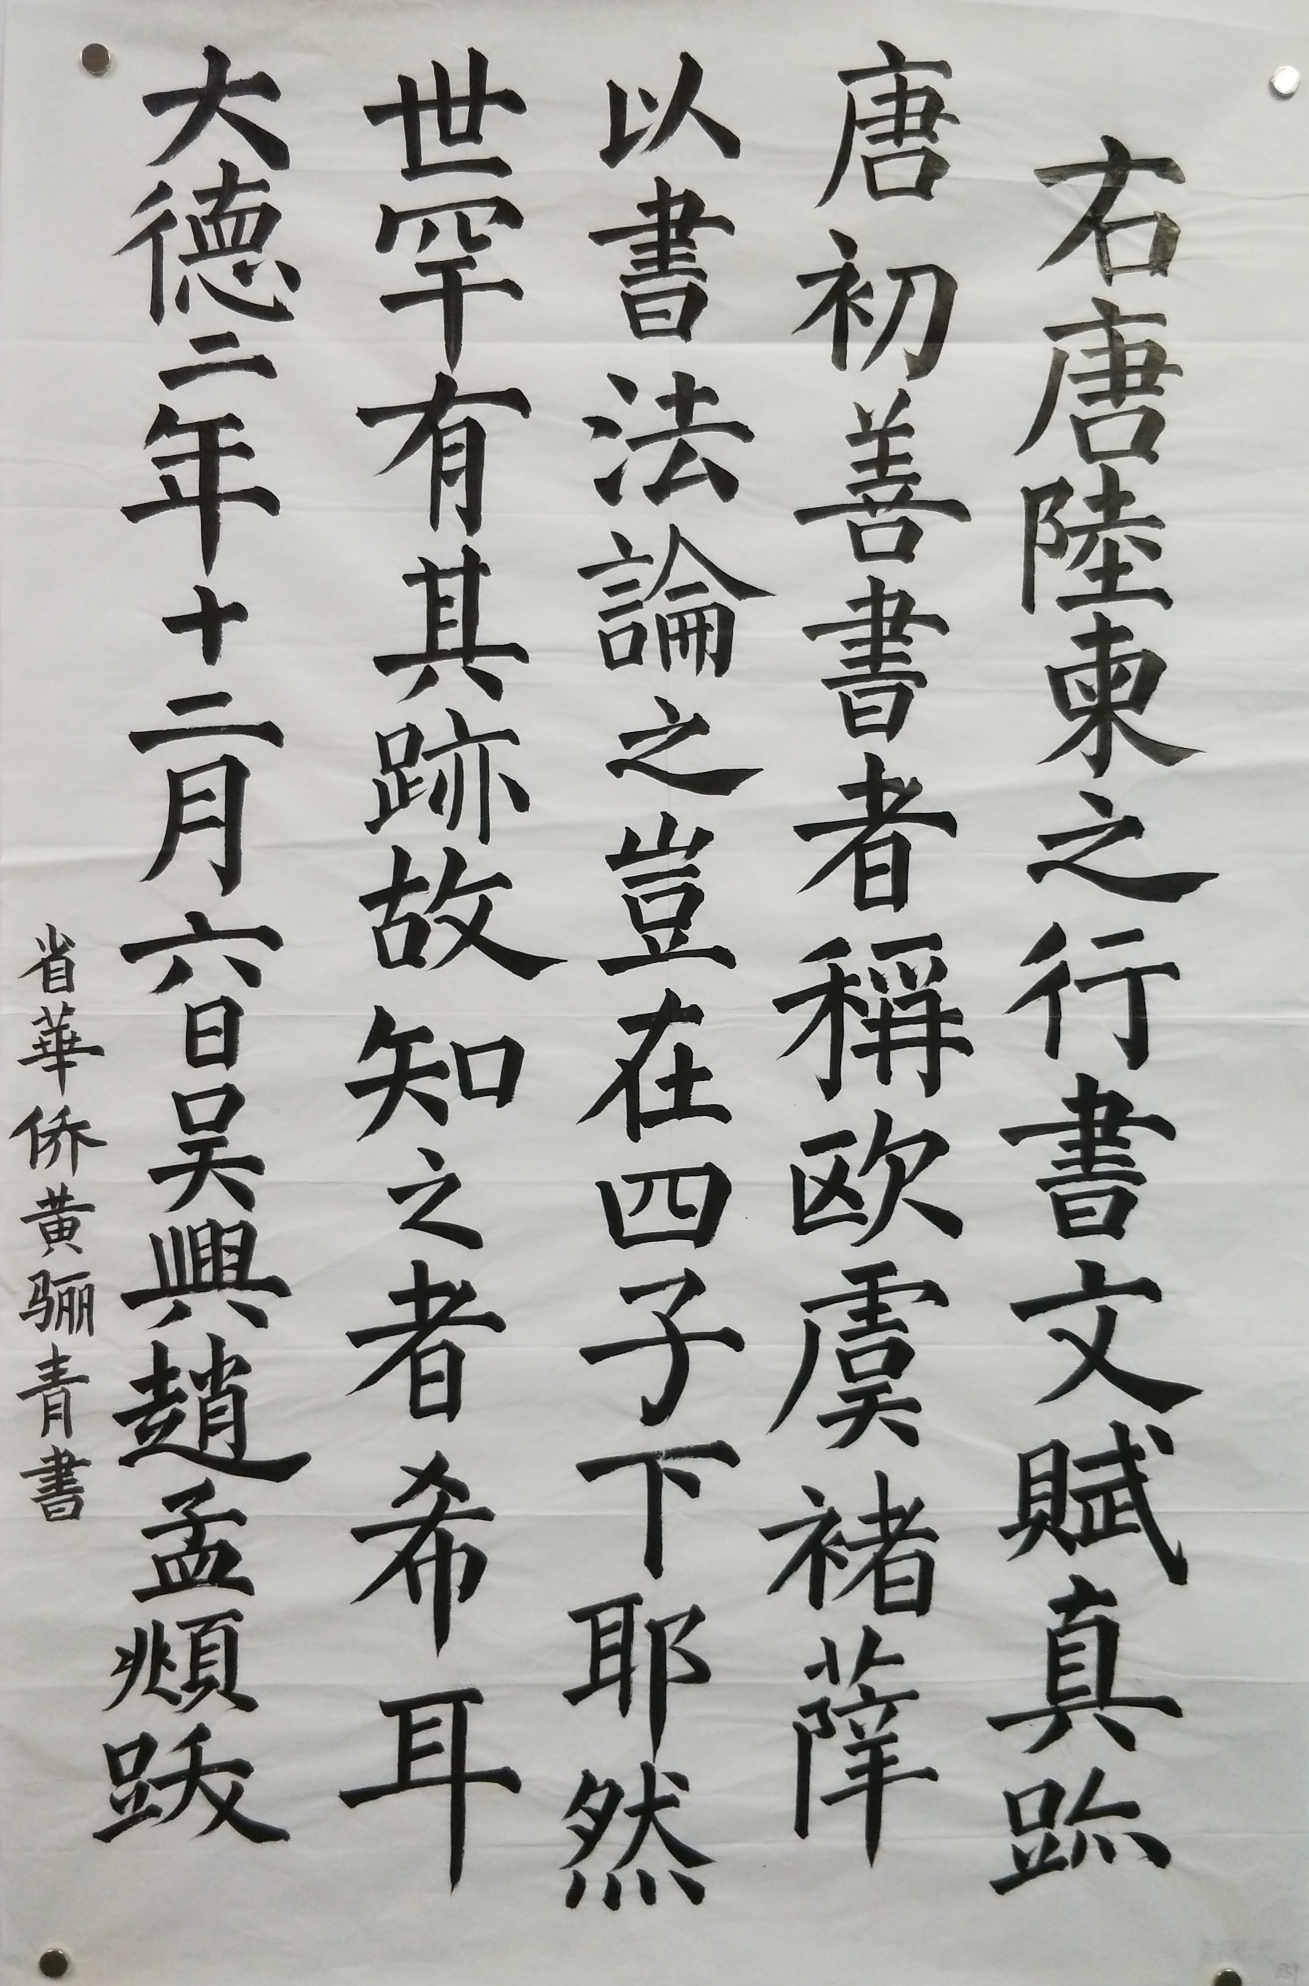 右唐陸柬之行書文賦真跡
唐初善書者稱欧虞褚薛
以書法論之豈在四子下耶然
世罕有其跡故知之者希耳
大德二年十二月六日吴興趙孟頫跋
省華侨黄骊青書